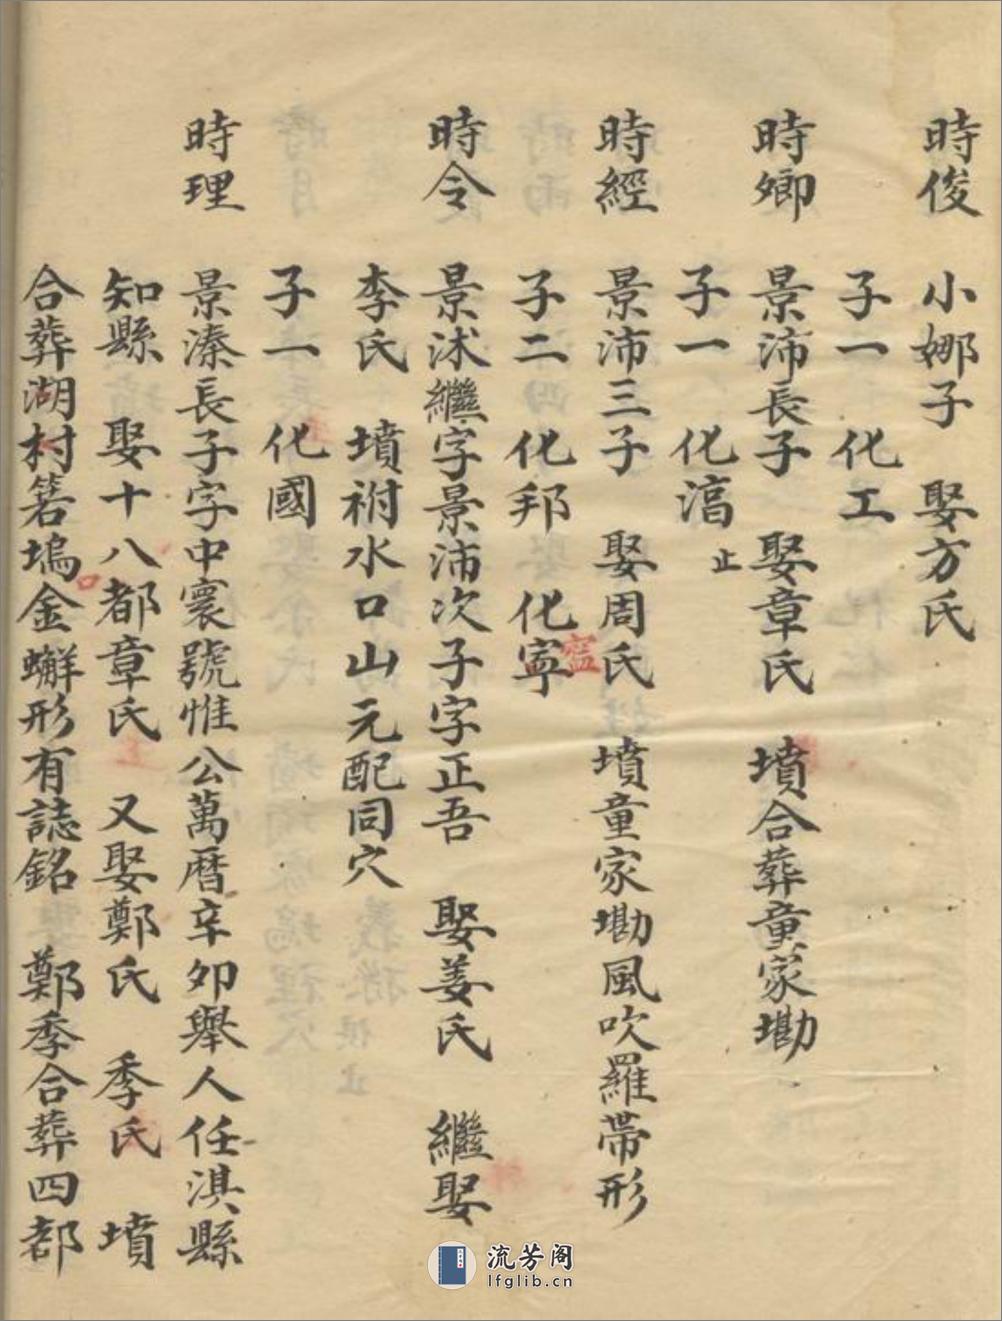 時俊 小娜子 娶方氏
子一 化工
時卿 景沛長子 娶章氏 墳合葬童家墈
子一 化滈 止
時經 景沛三子 娶周氏 墳童家墈風吹羅帶形
子二 化邦 化寜
時令 景沭繼字景沛次子字正吾 娶姜氏 繼娶
李氏 墳祔水口山元配同穴
子一 化國
時理 景溱長子字中寰號惟公萬曆辛卯舉人任淇縣
知縣 娶十八都章氏 又娶鄭氏 季氏 墳
合葬湖村箬塢金蠏形有誌銘 鄭季合葬四都
流芳阁
lfglib.cn